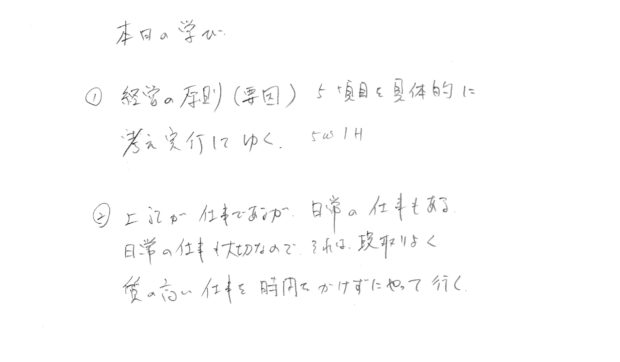 本日の学び
① 経営の原則(要因) 5項目を具体的に
考え実行してゆく. 5W1H
② 上記が仕事であるが. 日常の仕事もある.
日常の仕事も大切なので. それは. 段取りよく
質の高い仕事を時間をかけずにやって行く.